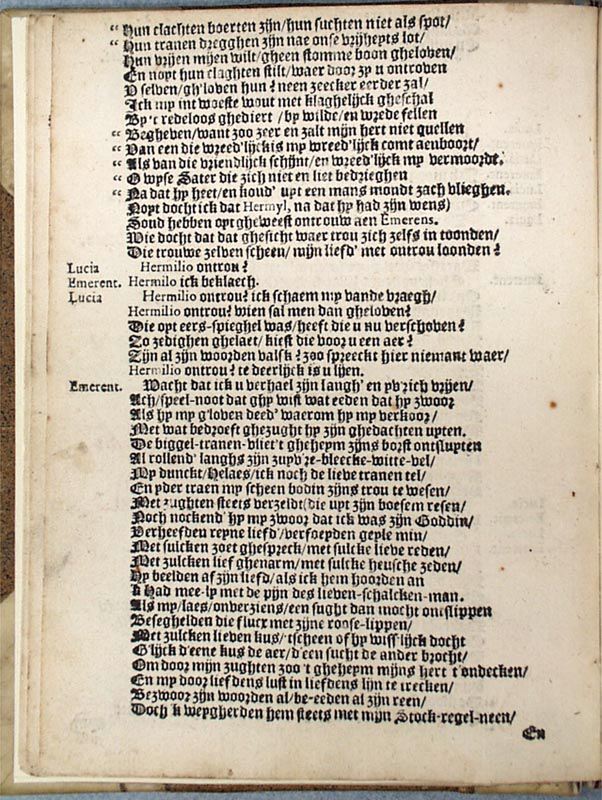 “ Hun clachten boerten zijn/hun suchten niet als spot/
“ Hun tranen dregghen zijn nae onse vrijheyts lot/
Hun vrijen mijen wilt/gheen stomme boon gheloven/
En noyt hun claghten stilt/waer door zy u ontroven
U selven/gh'loven hun? neen zeecker eer der zal/
Ick my int woeste wout met klaghelijck gheschal
By 't redeloos ghediert / by wilde/en wrede fellen
“ Begheven/want zoo zeer en zalt mijn hert niet quellen
“ Van een die wreed'lijck is my wreed'lijck comt aenboort/
“ Als van die vriendlijck schijnt/en wreed'lijck my vermoordt.
“ O wyse Sater die zich niet en liet bedrieghen
“ Na dat hy heet/en koud' uyt een mans mondt zach vlieghen.
Noyt docht ick dat Hermyl, na dat hy had zijn wens)
Soud hebben oyt gheweest ontrouw aen Emerens.
Wie docht dat dat ghesicht waer trou zich zelfs in toonden/
Die trouwe zelven scheen/ mijn liefd' met ontrou loonden?
Lucia Hermilio ontrou?
Emerent. Hermilo ick beklaech.
Lucia Hermilio ontrou? ick schaem my vande vraegh/
Hermilio ontrou? wien sal men dan gheloven?
Die opt eers-spieghel was/heeft die u nu verschoven?
Zo zedighen ghelaet/ kiest die voor u een aer?
Zijn al zijn woorden valsk? zoo spreeckt hier niemant waer/
Hermilio ontrou? te deerlijck is u lijen.
Emerent. Wacht dat ick u verhael zijn langh' en yv'rich vrijen/
Ach/speel-noot dat ghy wist wat eeden dat hy zwoor
Als hy my g'loven deed' waerom hy my verkoor/
Met wat bedroeft ghezught hy zijn ghedachten uyten.
De biggel-tranen-vliet't gheheym zijns borst ontsluyten
Al rollend' langhs zijn zuyv're-bleecke-witte-vel/
My dunckt/Helaes/ick noch de lieve tranen tel/
En yder traen my scheen bodin zijns trou te wesen/
Met zughten steets verzeldt(die uyt zijn boesem resen/
Noch nockend' hy my zwoor dat ick was zijn Goddin/
Verheefden reyne liefd'/versoeyden geyle min/
Met sulcken zoet ghespreck/met sulcke lieve reden/
Met zulcken lief ghenarm/met sulcke heusche zeden/
Hy beelden af zijn liefd/als ick hem hoorden an
'k Had mee-ly met de pijn des lieven-schalcken-man.
Als my/laes/onverziens/een sught dan mocht ontslippen
Beseghelden die flucx met zijne roose-lippen/
Met zulcken lieven kus/'tscheen of hy wiss'lijck docht
G'lijck d'eene kus de aer/d'een sucht de ander brocht/
Om door mijn zughten zoo 't gheheym mijns hert t'ondecken/
En my door liefdens lust in liefdens lijn te trecken/
Bezwoor zijn woorden al/be-eeden al zijn reen/
Doch 'k weygherden hem steets met mijn Stock-regel-neen/
En